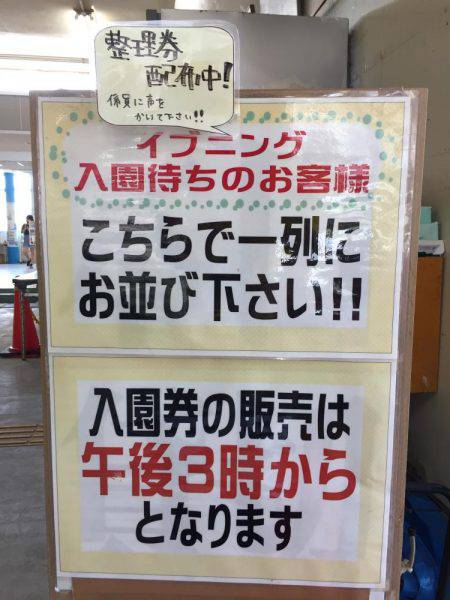 整理券
配布中!
係員に声を
かけて下さい!!
イブニング
入園待ちのお客様
こちらで一列に
お並び下さい!!
入園券の販売は
午後3時から
となります